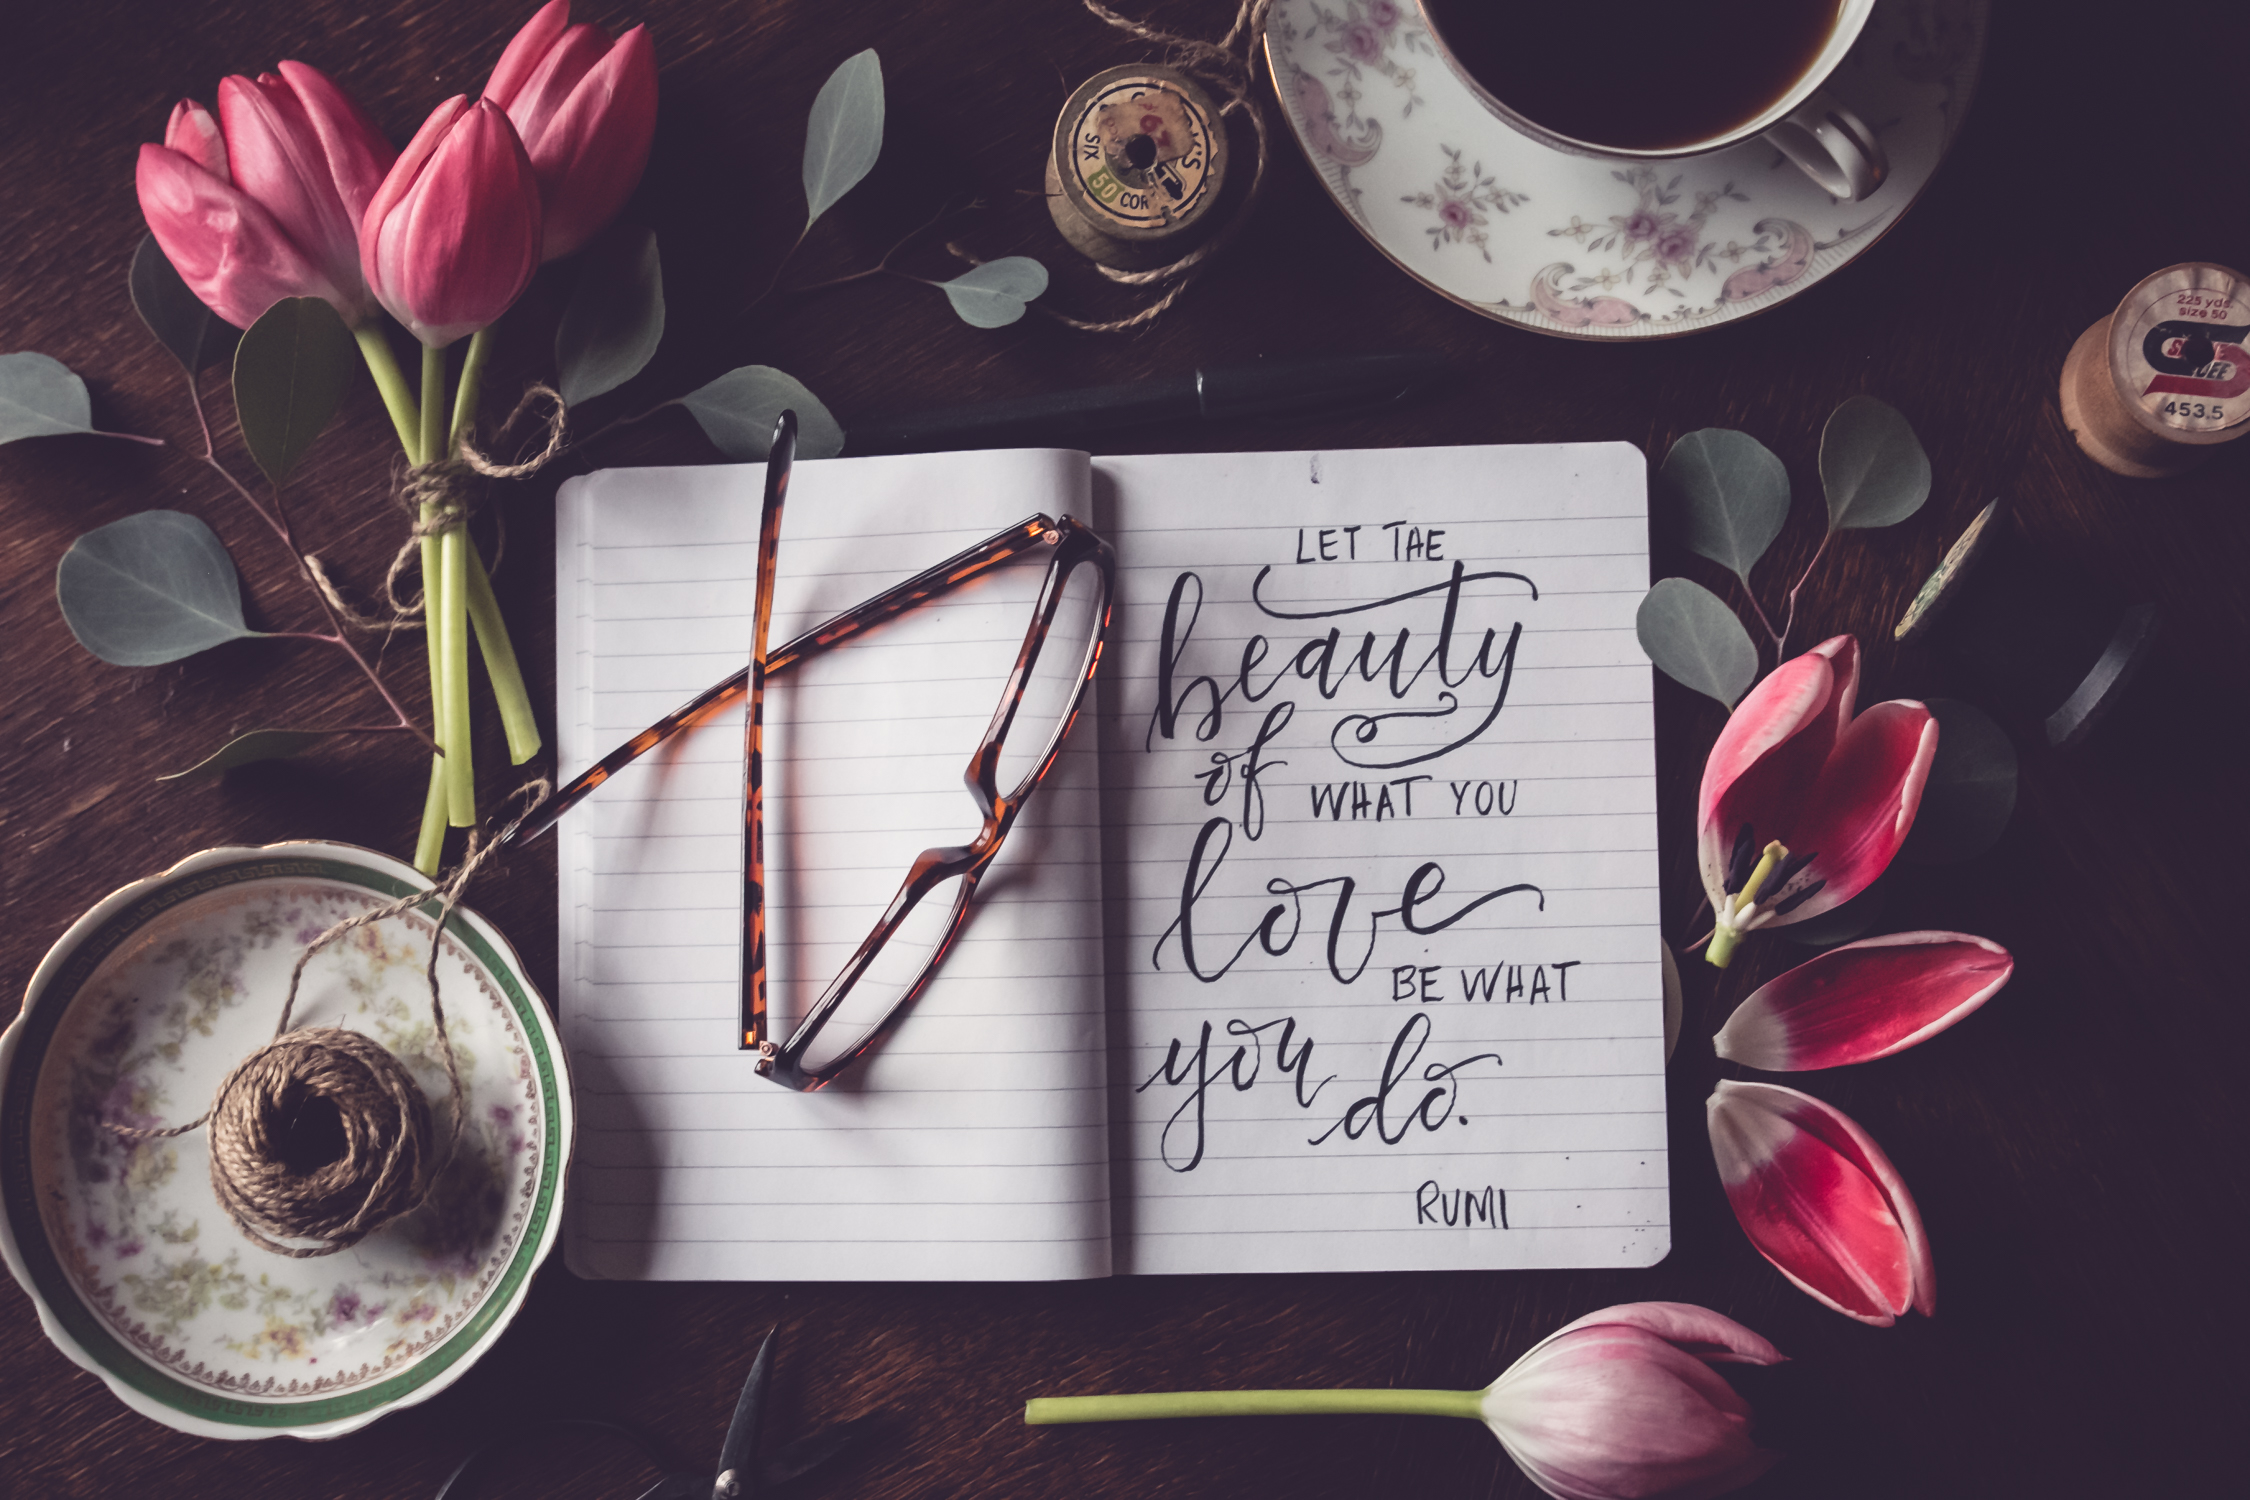 LET THE
beauty
of WHAT YOU
love
BE WHAT
you do.
RUMI
SIX
50 COR
225 yds.
size 50
453.5